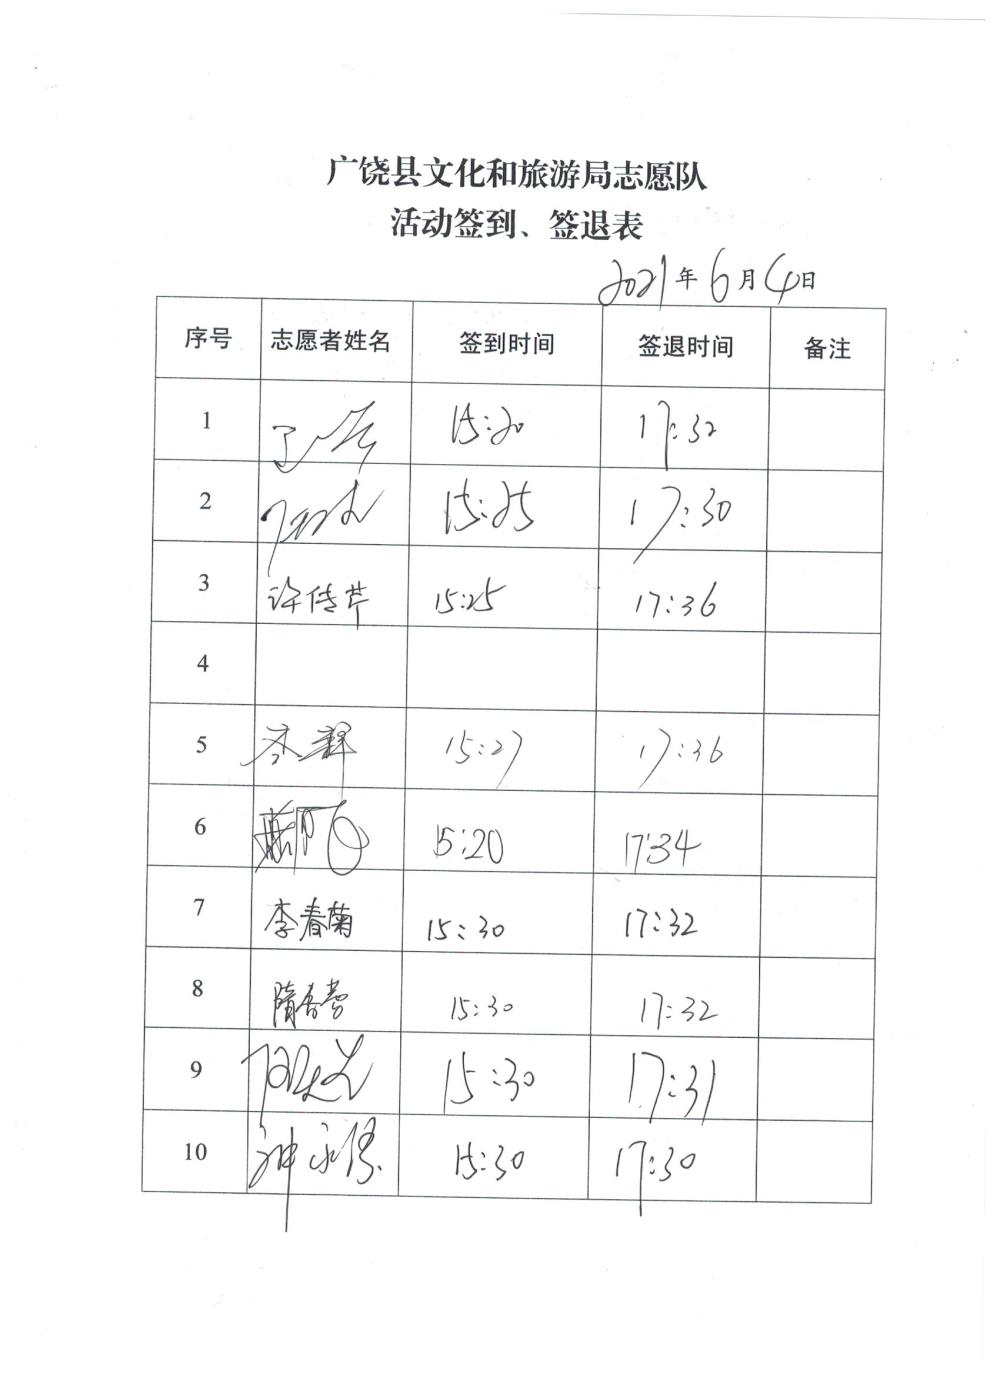 广饶县文化和旅游局志愿队
活动签到、签退表
2021年6月4日
序号 志愿者姓名 签到时间 签退时间 备注
1 15:20 17:32
2 15:25 17:30
3 许传芹 15:25 17:36
4
5 15:27 17:36
6 15:20 17:34
7 李春菊 15:30 17:32
8 15:30 17:32
9 15:30 17:31
10 15:30 17:30